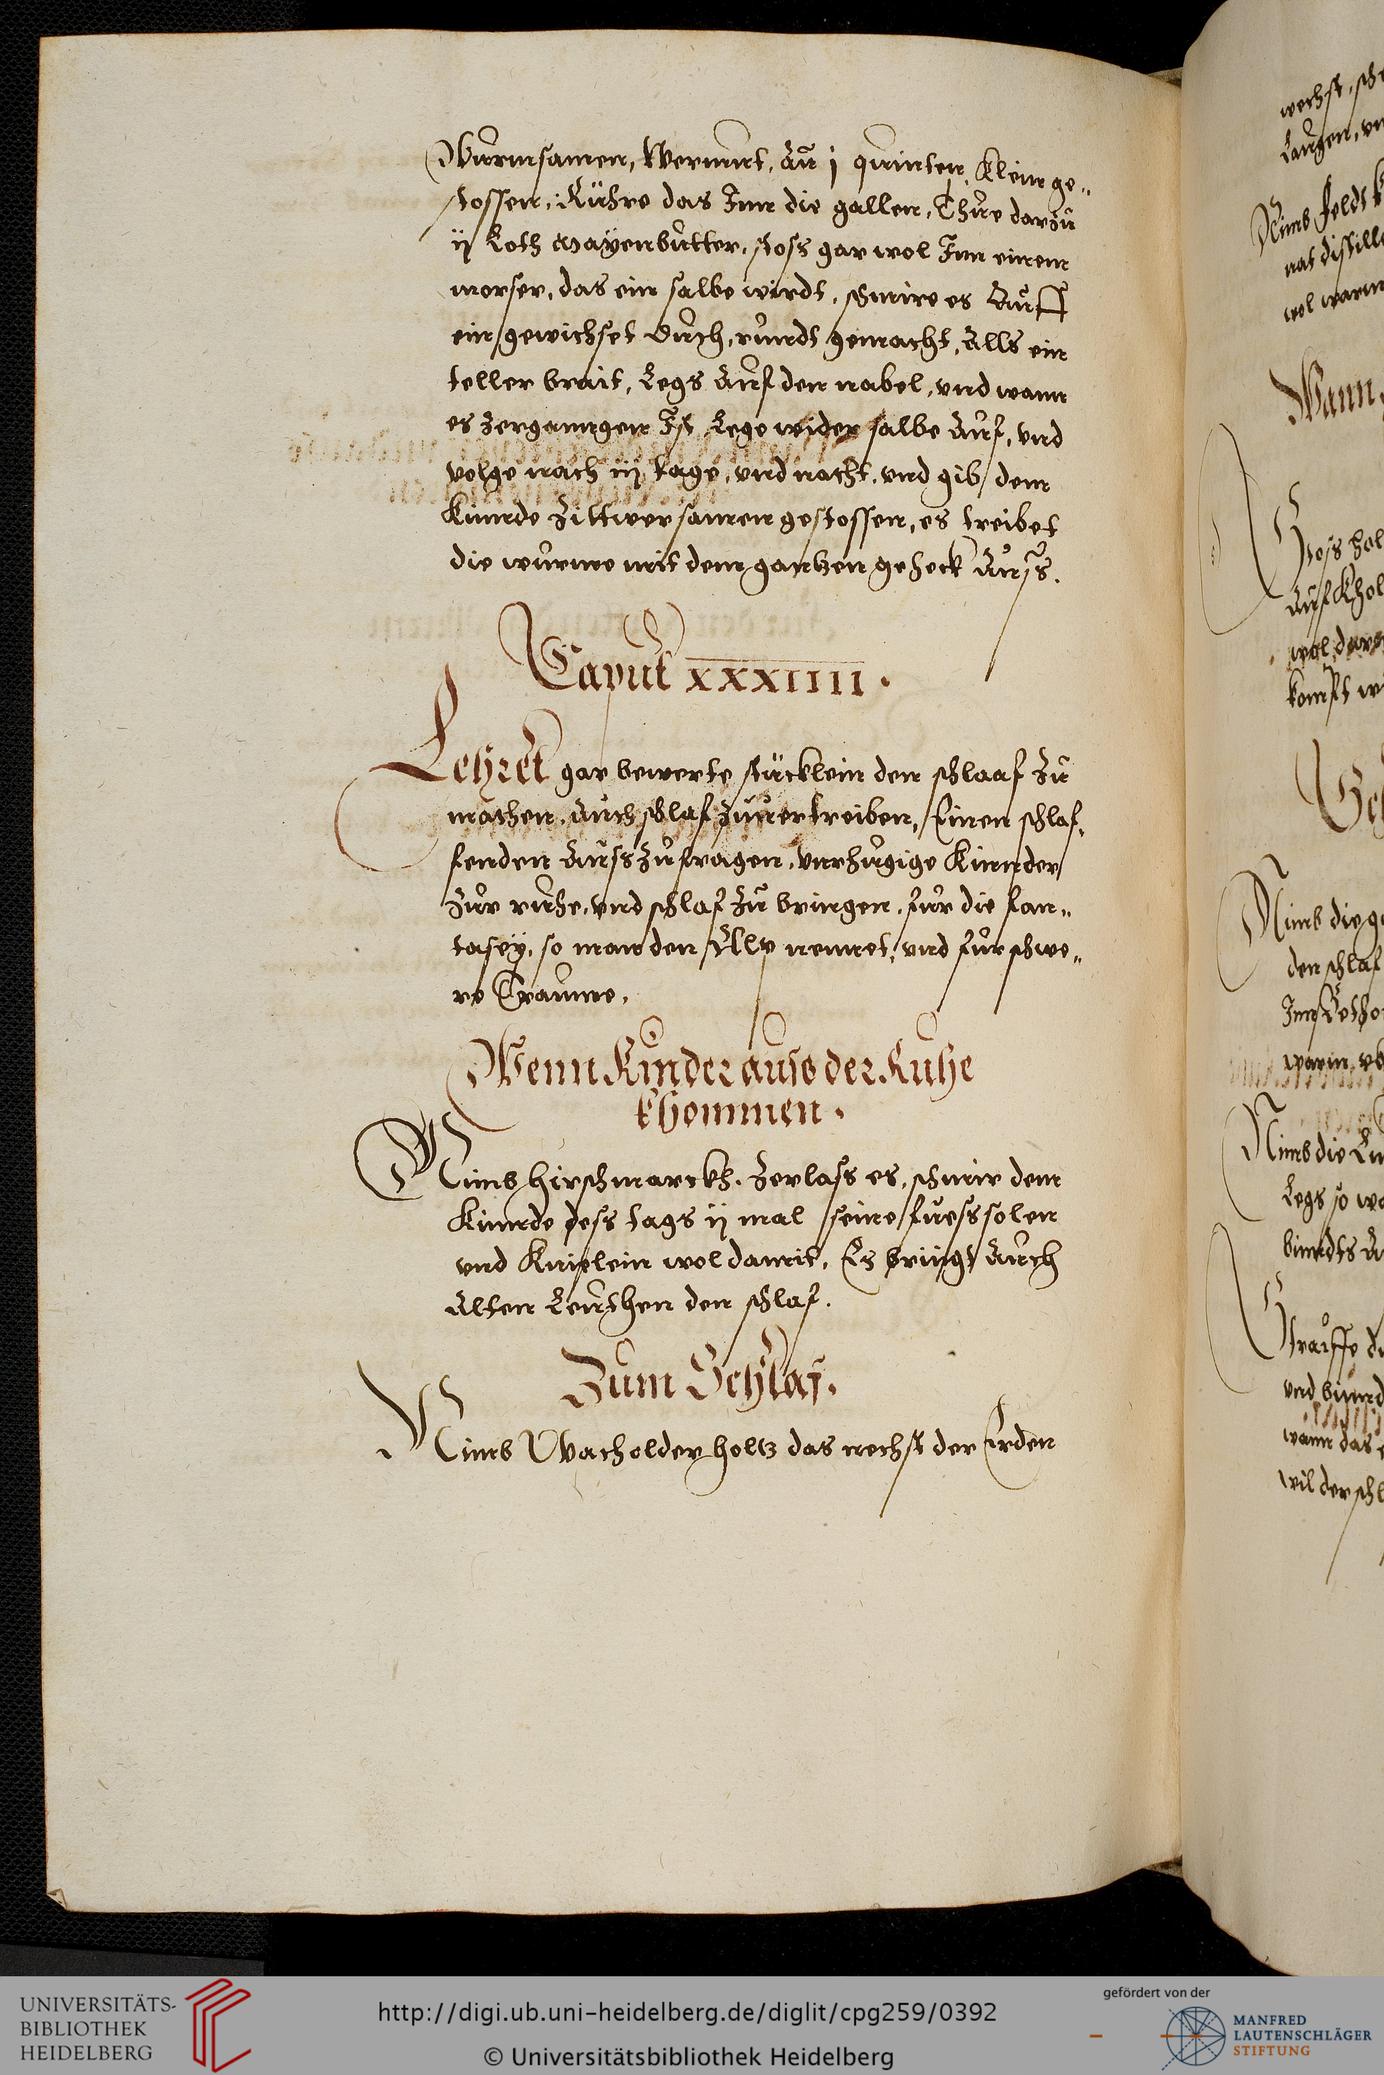 Wurmsamen, Wermut, Zu j quinten, klein ge„
stossen, Rühre das Inn die gallen, Thue darzu
ij Loth Mayenbutter, stoss gar wol Inn einem
morser, das ein salbe wirdt, schmire es Auff
ein gewichset Duch, rundt gemacht, Alls ein
teller brait, Legs Auf den nabel, vnd wann
es zerganngen Ist, Lege wider salbe Auf, vnd
volge nach iij tage, vnd nacht, vnd gib dem
Kinnde Zittwersamen gestossen, es treibet
die würme mit dem gantzen geheck Auss.
Caput XXXIIII.
Lehret gar bewerte stücklein den schlaaf Zu
machen, Auch schlaf Zuuertreiben, Einen schlaf„
fenden Auss Zufragen, vnrhugige Kinnder
Zur ruhe, vnd schlaf Zu bringen, für die fan„
tasey, so man den Alp nennet, vnd für schwe„
re Traume.
Wenn Kinder auss der Ruhe
khommen.
Nimb Hirschmarckh, Zerlass es, schmir dem
Kinnde dess tags ij mal seine fuessolen
vnd Knielein wol damit, Es bringt Auch
Alten Leuthen den schlaf.
Zum Schlaf.
Nimb Wacholder holtz das nechst der Erden
Nimb feldt
nat distill
wol warm
Wann
Stoss
Auf Khol
Nimb die
den schlaf
warm
Nimb die
Legs so
vnd
wann das
wil der
UNIVERSITÄTS-
BIBLIOTHEK
HEIDELBERG
http://digi.ub.uni-heidelberg.de/diglit/cpg259/0392
© Universitätsbibliothek Heidelberg
gefördert von der
MANFRED
LAUTENSCHLÄGER
STIFTUNG